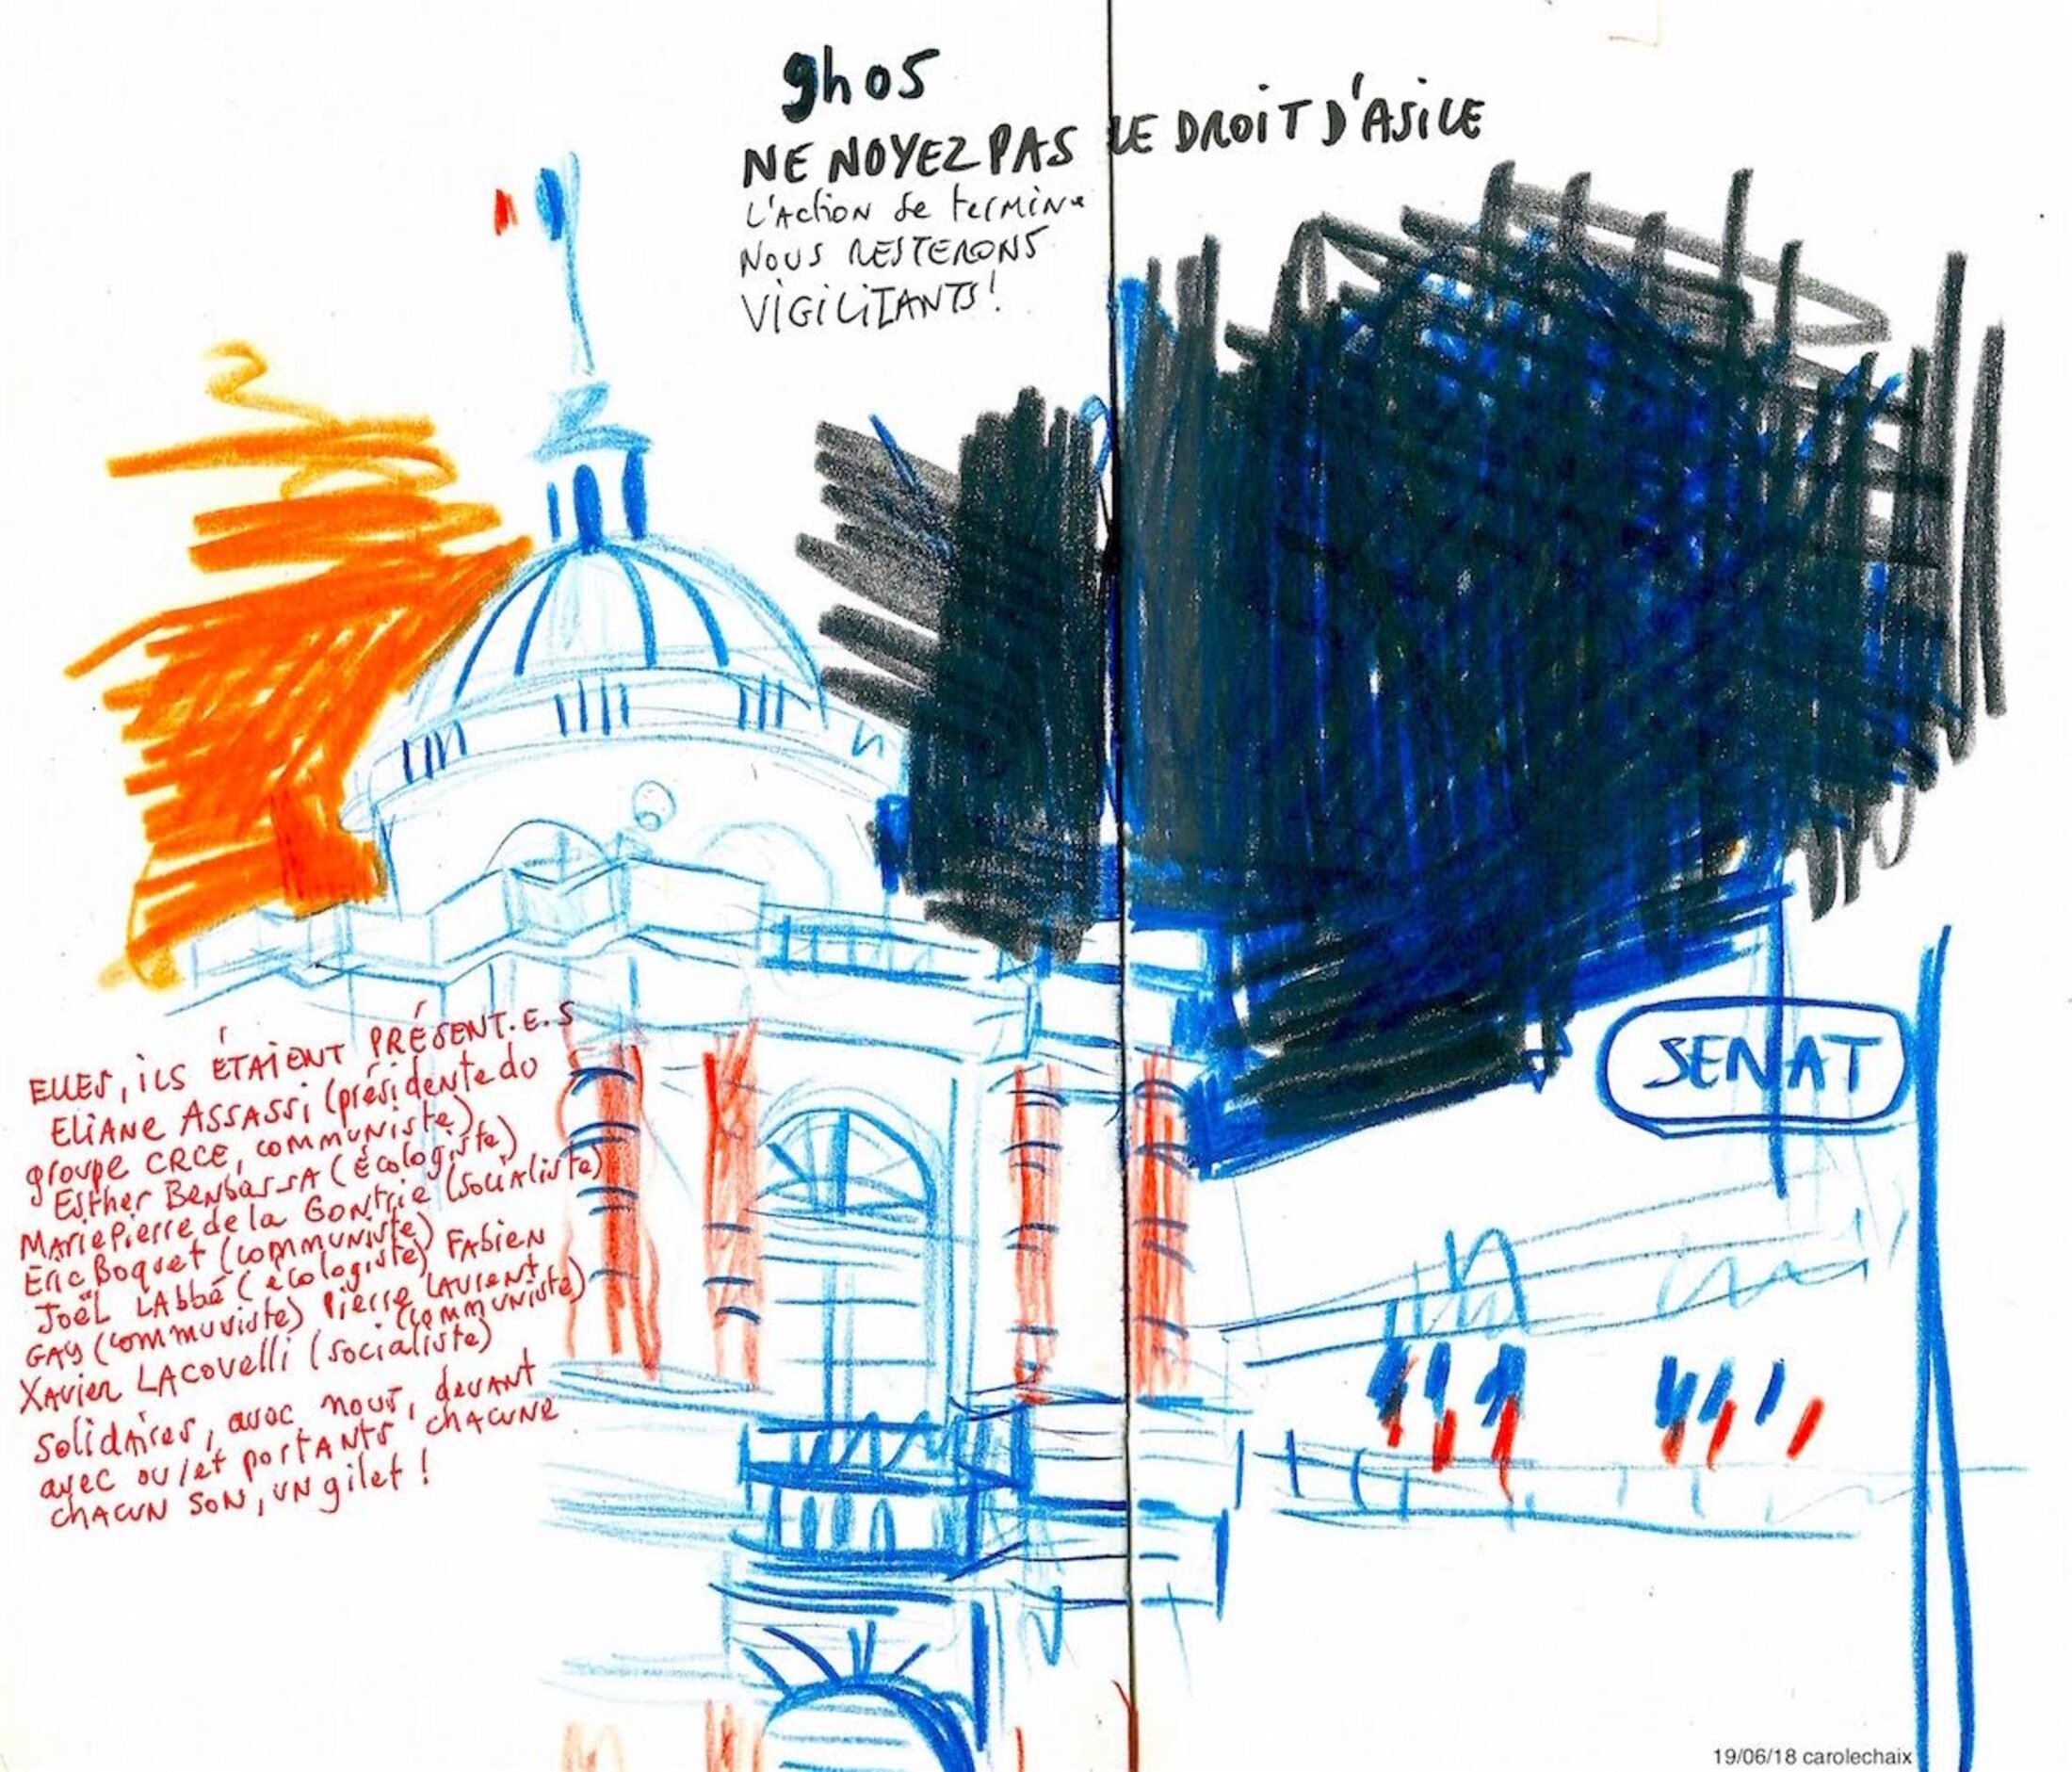 9h05
NE NOYEZ PAS LE DROIT D'ASILE
L'ACTION SE TERMINE
NOUS RESTERONS
VIGILITANTS!
ELLES, ILS ÉTAIENT PRÉSENT.E.S
ELIANE ASSASSI (présidente du
groupe CRCE, communiste)
Esther BENBASSA (écologiste)
Marie Pierre de la Gontrie (socialiste)
Eric Boquet (communiste)
Joël LAbbé (écologiste) FAbien
GAY (communiste) Pierre LAURENT
(communiste)
XAvier LACovelli (socialiste)
solidaires, avec nous, devant
avec ou/et portants chacune
chacun son, un gilet !
SENAT
19/06/18 carolechaix